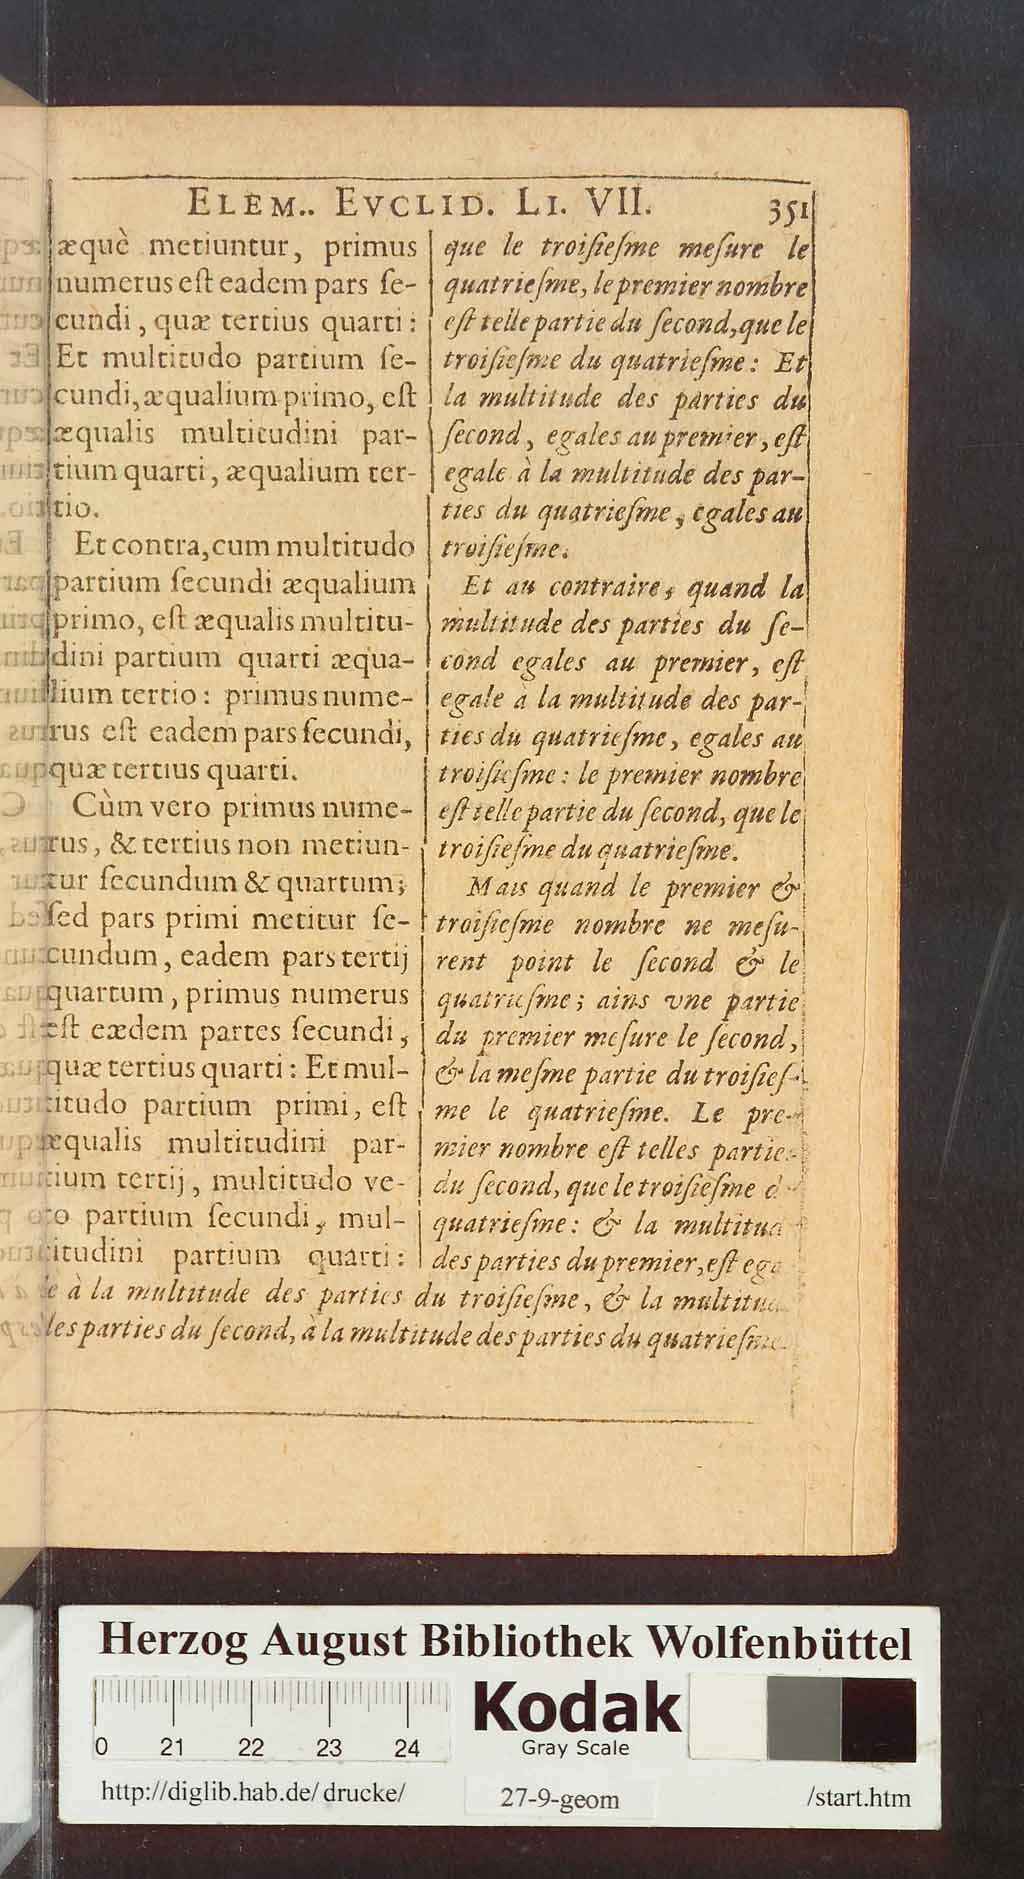 ELEM.. EVCLID. LI. VII. 351
æquè metiuntur, primus
numerus eſt eadem pars ſe-
cundi, quæ tertius quarti:
Et multitudo partium ſe-
cundi, æqualium primo, eſt
æqualis multitudini par-
tium quarti, æqualium ter-
tio.
Et contra, cum multitudo
partium ſecundi æqualium
primo, eſt æqualis multitu-
dini partium quarti æqua-
lium tertio: primus nume-
rus eſt eadem pars ſecundi,
quæ tertius quarti.
Cùm vero primus nume-
rus, & tertius non metiun-
tur ſecundum & quartum;
ſed pars primi metitur ſe-
cundum, eadem pars tertij
quartum, primus numerus
eſt eædem partes ſecundi,
quæ tertius quarti: Et mul-
titudo partium primi, eſt
æqualis multitudini par-
tium tertij, multitudo ve-
ro partium ſecundi, mul-
titudini partium quarti:
que le troiſieſme meſure le
quatrieſme, le premier nombre
eſt telle partie du ſecond, que le
troiſieſme du quatrieſme: Et
la multitude des parties du
ſecond, egales au premier, eſt
egale à la multitude des par-
ties du quatrieſme, egales au
troiſieſme.
Et au contraire, quand la
multitude des parties du ſe-
cond egales au premier, eſt
egale à la multitude des par-
ties du quatrieſme, egales au
troiſieſme: le premier nombre
eſt telle partie du ſecond, que le
troiſieſme du quatrieſme.
Mais quand le premier &
troiſieſme nombre ne meſu-
rent point le ſecond & le
quatrieſme; ains vne partie
du premier meſure le ſecond,
& la meſme partie du troiſieſ-
me le quatrieſme. Le pre-
mier nombre eſt telles parties
du ſecond, que le troiſieſme d
quatrieſme: & la multitud
des parties du premier, eſt ega
le à la multitude des parties du troiſieſme, & la multitud
des parties du ſecond, à la multitude des parties du quatrieſme.
Herzog August Bibliothek Wolfenbüttel
0 21 22 23 24
Kodak
Gray Scale
http://diglib.hab.de/drucke/ 27-9-geom /start.htm